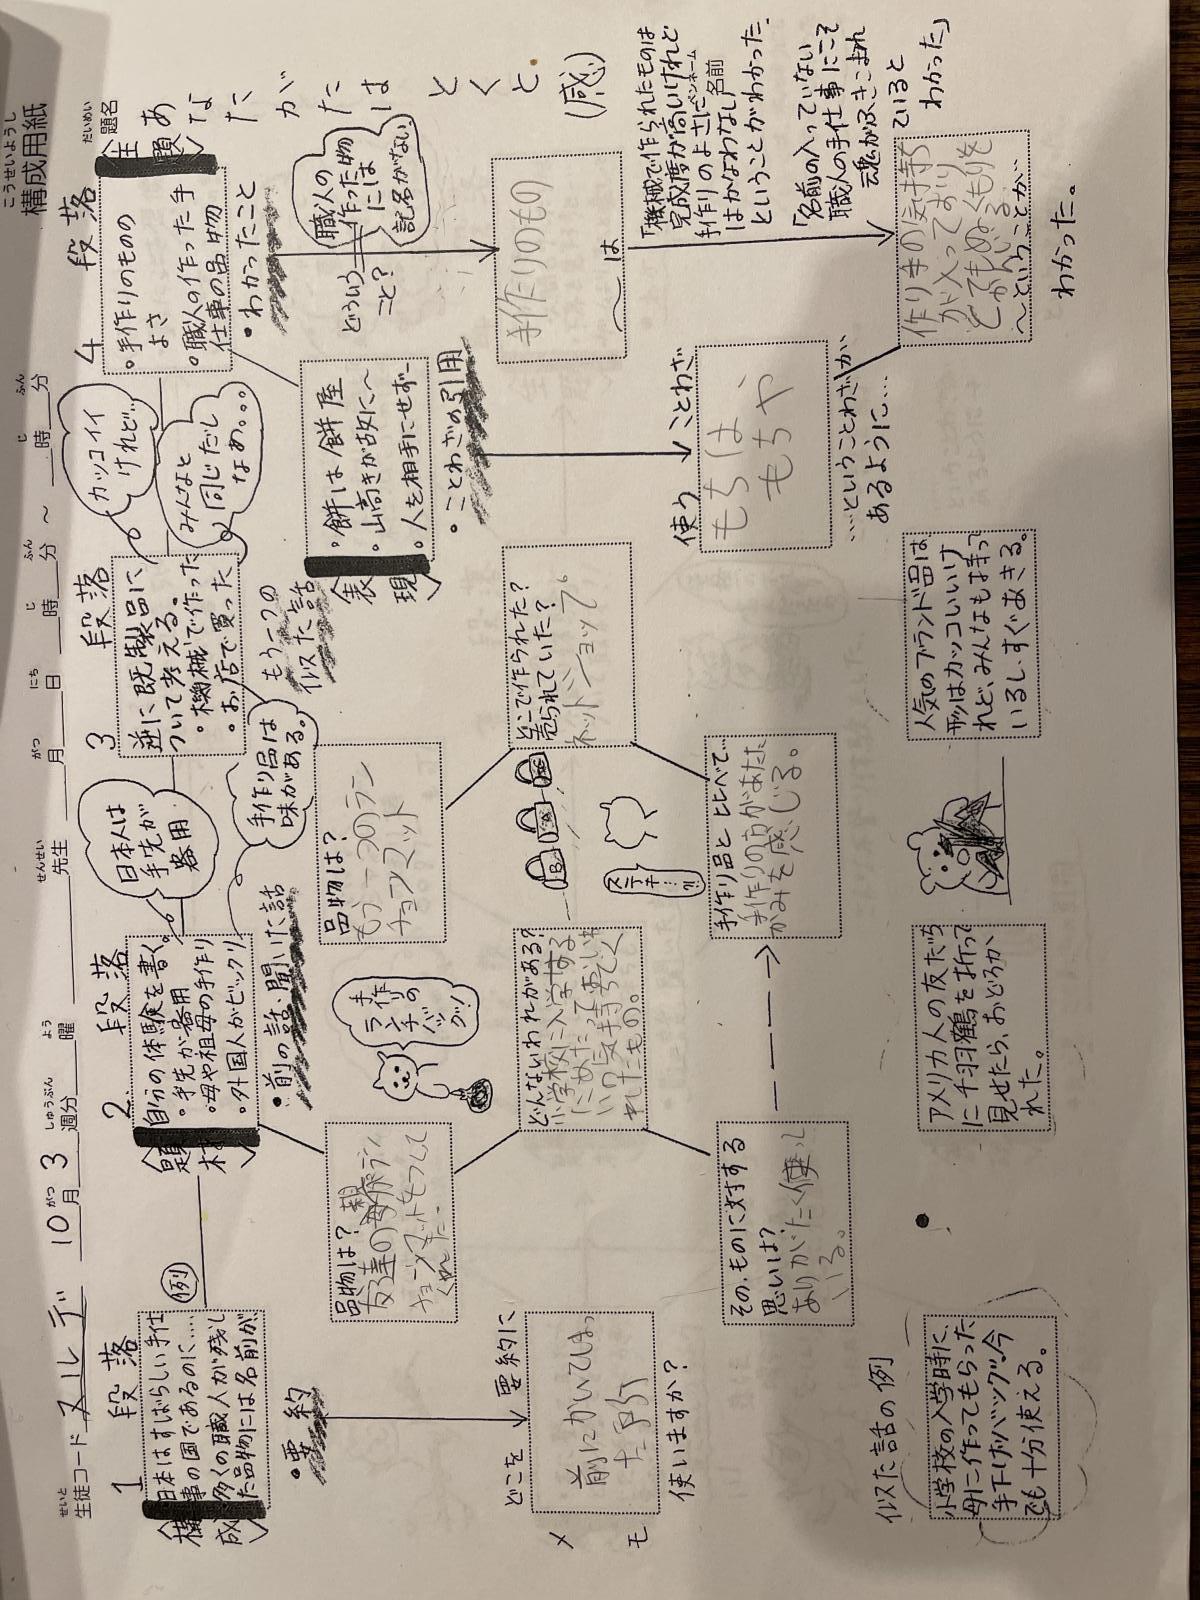 こうせいようし
構成用紙
せいと
生徒コード ヌレデ 10月 3週分 曜 先生 月 日 時 分 ～ 時 分
がつ しゅうぶん よう せんせい がつ にち じ ふん じ ふん
だいめい
題名
あなたがたはとくと(感)
1
段落
構成
日本はすばらしい手仕
事の国であるのに…
多くの職人が残し
た品物には名前が、
例
・要約
どこを
要約に
前にかいてしまっ
た所
使いますか？
メモ
2
段落
題材
自分の体験を書く。
・手先が器用
・母や祖母の手作り
・外国人がビックリ
日本人は
手先が
器用
手作り品は
味がある。
・前の話・聞いた話
品物は？
友達の
手作
りの
ランチ
バッ
グ！
どんないわれがある？
小学校に入学する
その、ものに対する
思いは？
ありがたく使っ
いる。
もう一つの
似た話
品物は？
もう一つのラン
チョンマット
どこで作られた？
売られていた？
ネットショップ。
ステキ…!!
手作り品と比べて…
手作りの方があたた
かみを感じる。
3
段落
逆に既製品に
ついて考える。
・機械で作った
・お店で買った
カッコイイ
けれど…
みんなと
同じだし
なあ。。。
表現
・餅は餅屋
・山高きが故に～
・人を相手にせず―
・ことわざの引用
使う ことわざ
もちは
もちや
…ということわざが
あるように…
4
段落
主題
・手作りのものの
よさ
・職人の作った手
仕事の品物
・わかったこと
職人の
作った物
には
記名がない
どういう
こと？
手作りのもの
～は
「機械で作られたものは
完成度が高いけれど
手作りのよさに
はかなわない
ということがわかった。
ペンネーム
名前
「名前の入っていない
職人の手仕事にこそ
魂がふきこまれ
ていると
わかった」
作り手の気持ち
が入っており
とてもぬくもりを
～ということが…
わかった。
似た話の例
小学校の入学時に、
母に作ってもらった
手下げバッグ。今
でも十分使える。
アメリカ人の友だち
に千羽鶴を折って
見せたら、おどろか
れた。
人気のブランド品は
形はカッコいいけ
れど、みんなも持って
いるし、すぐあきる。